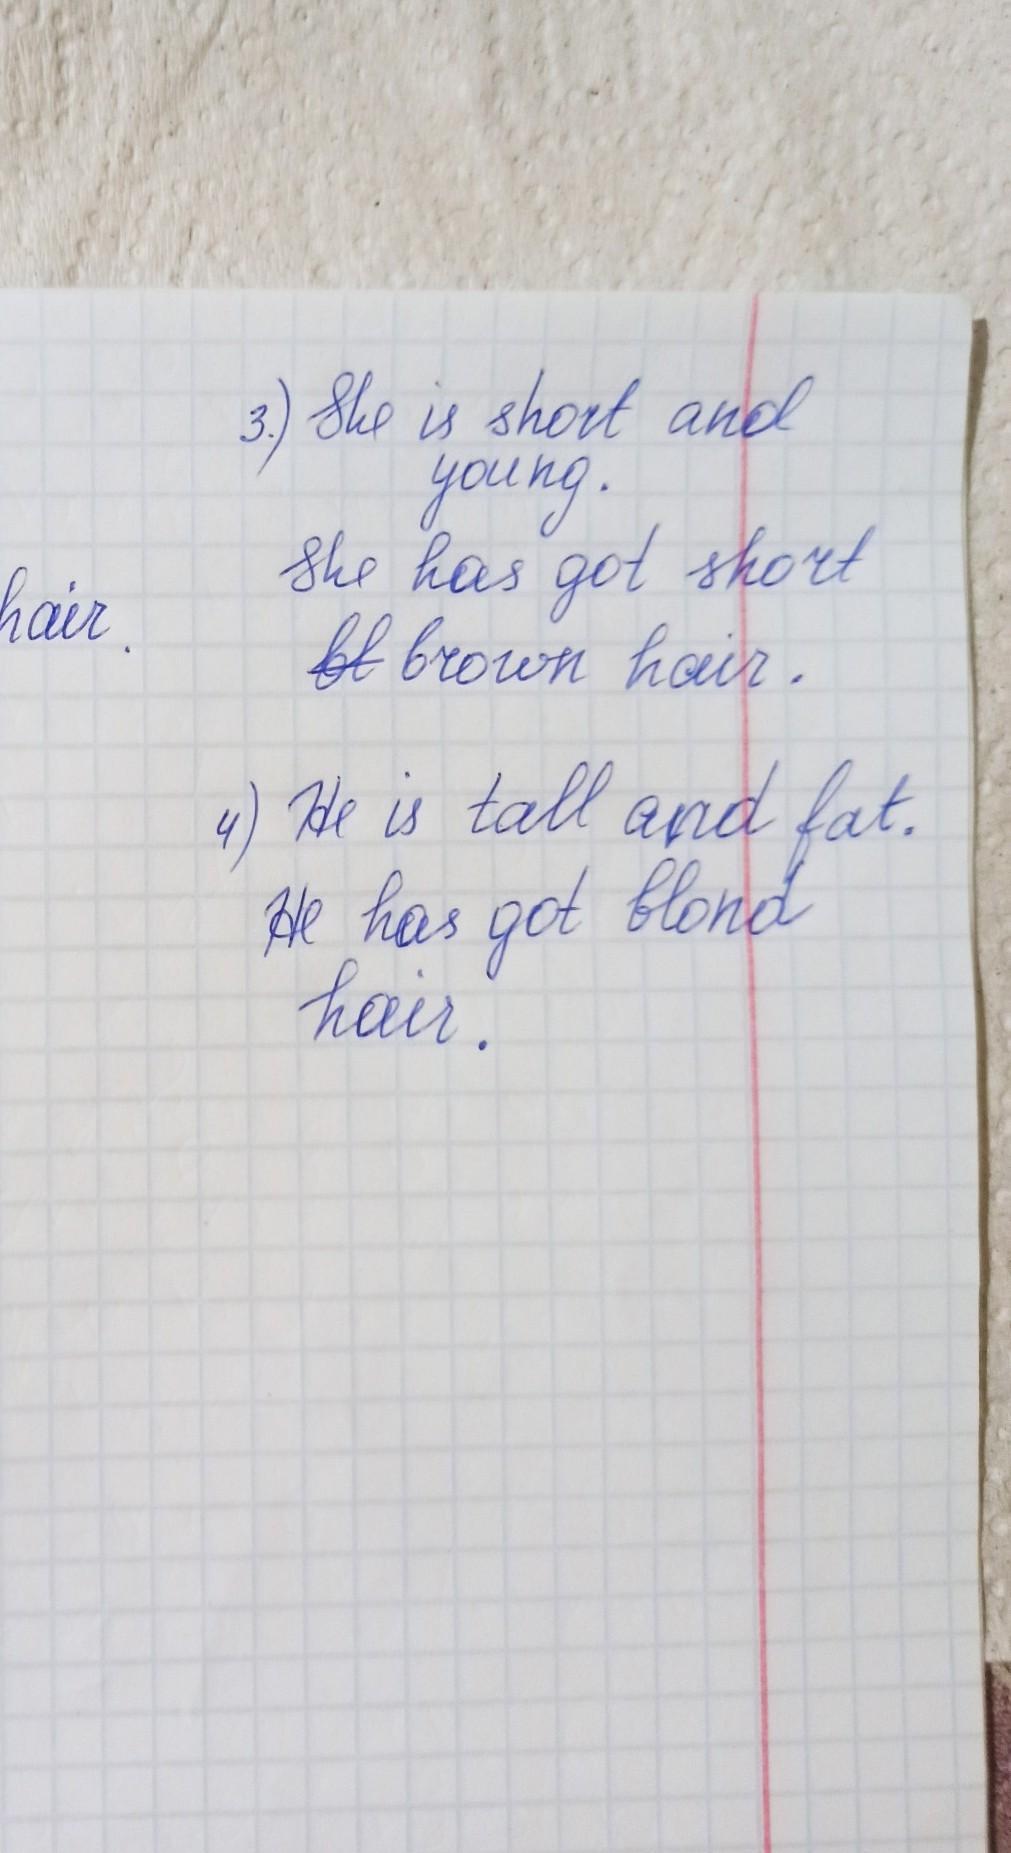 3.) She is short and
young.
She has got short
hair.
bl brown hair.
4) He is tall and fat.
He has got blond
hair.